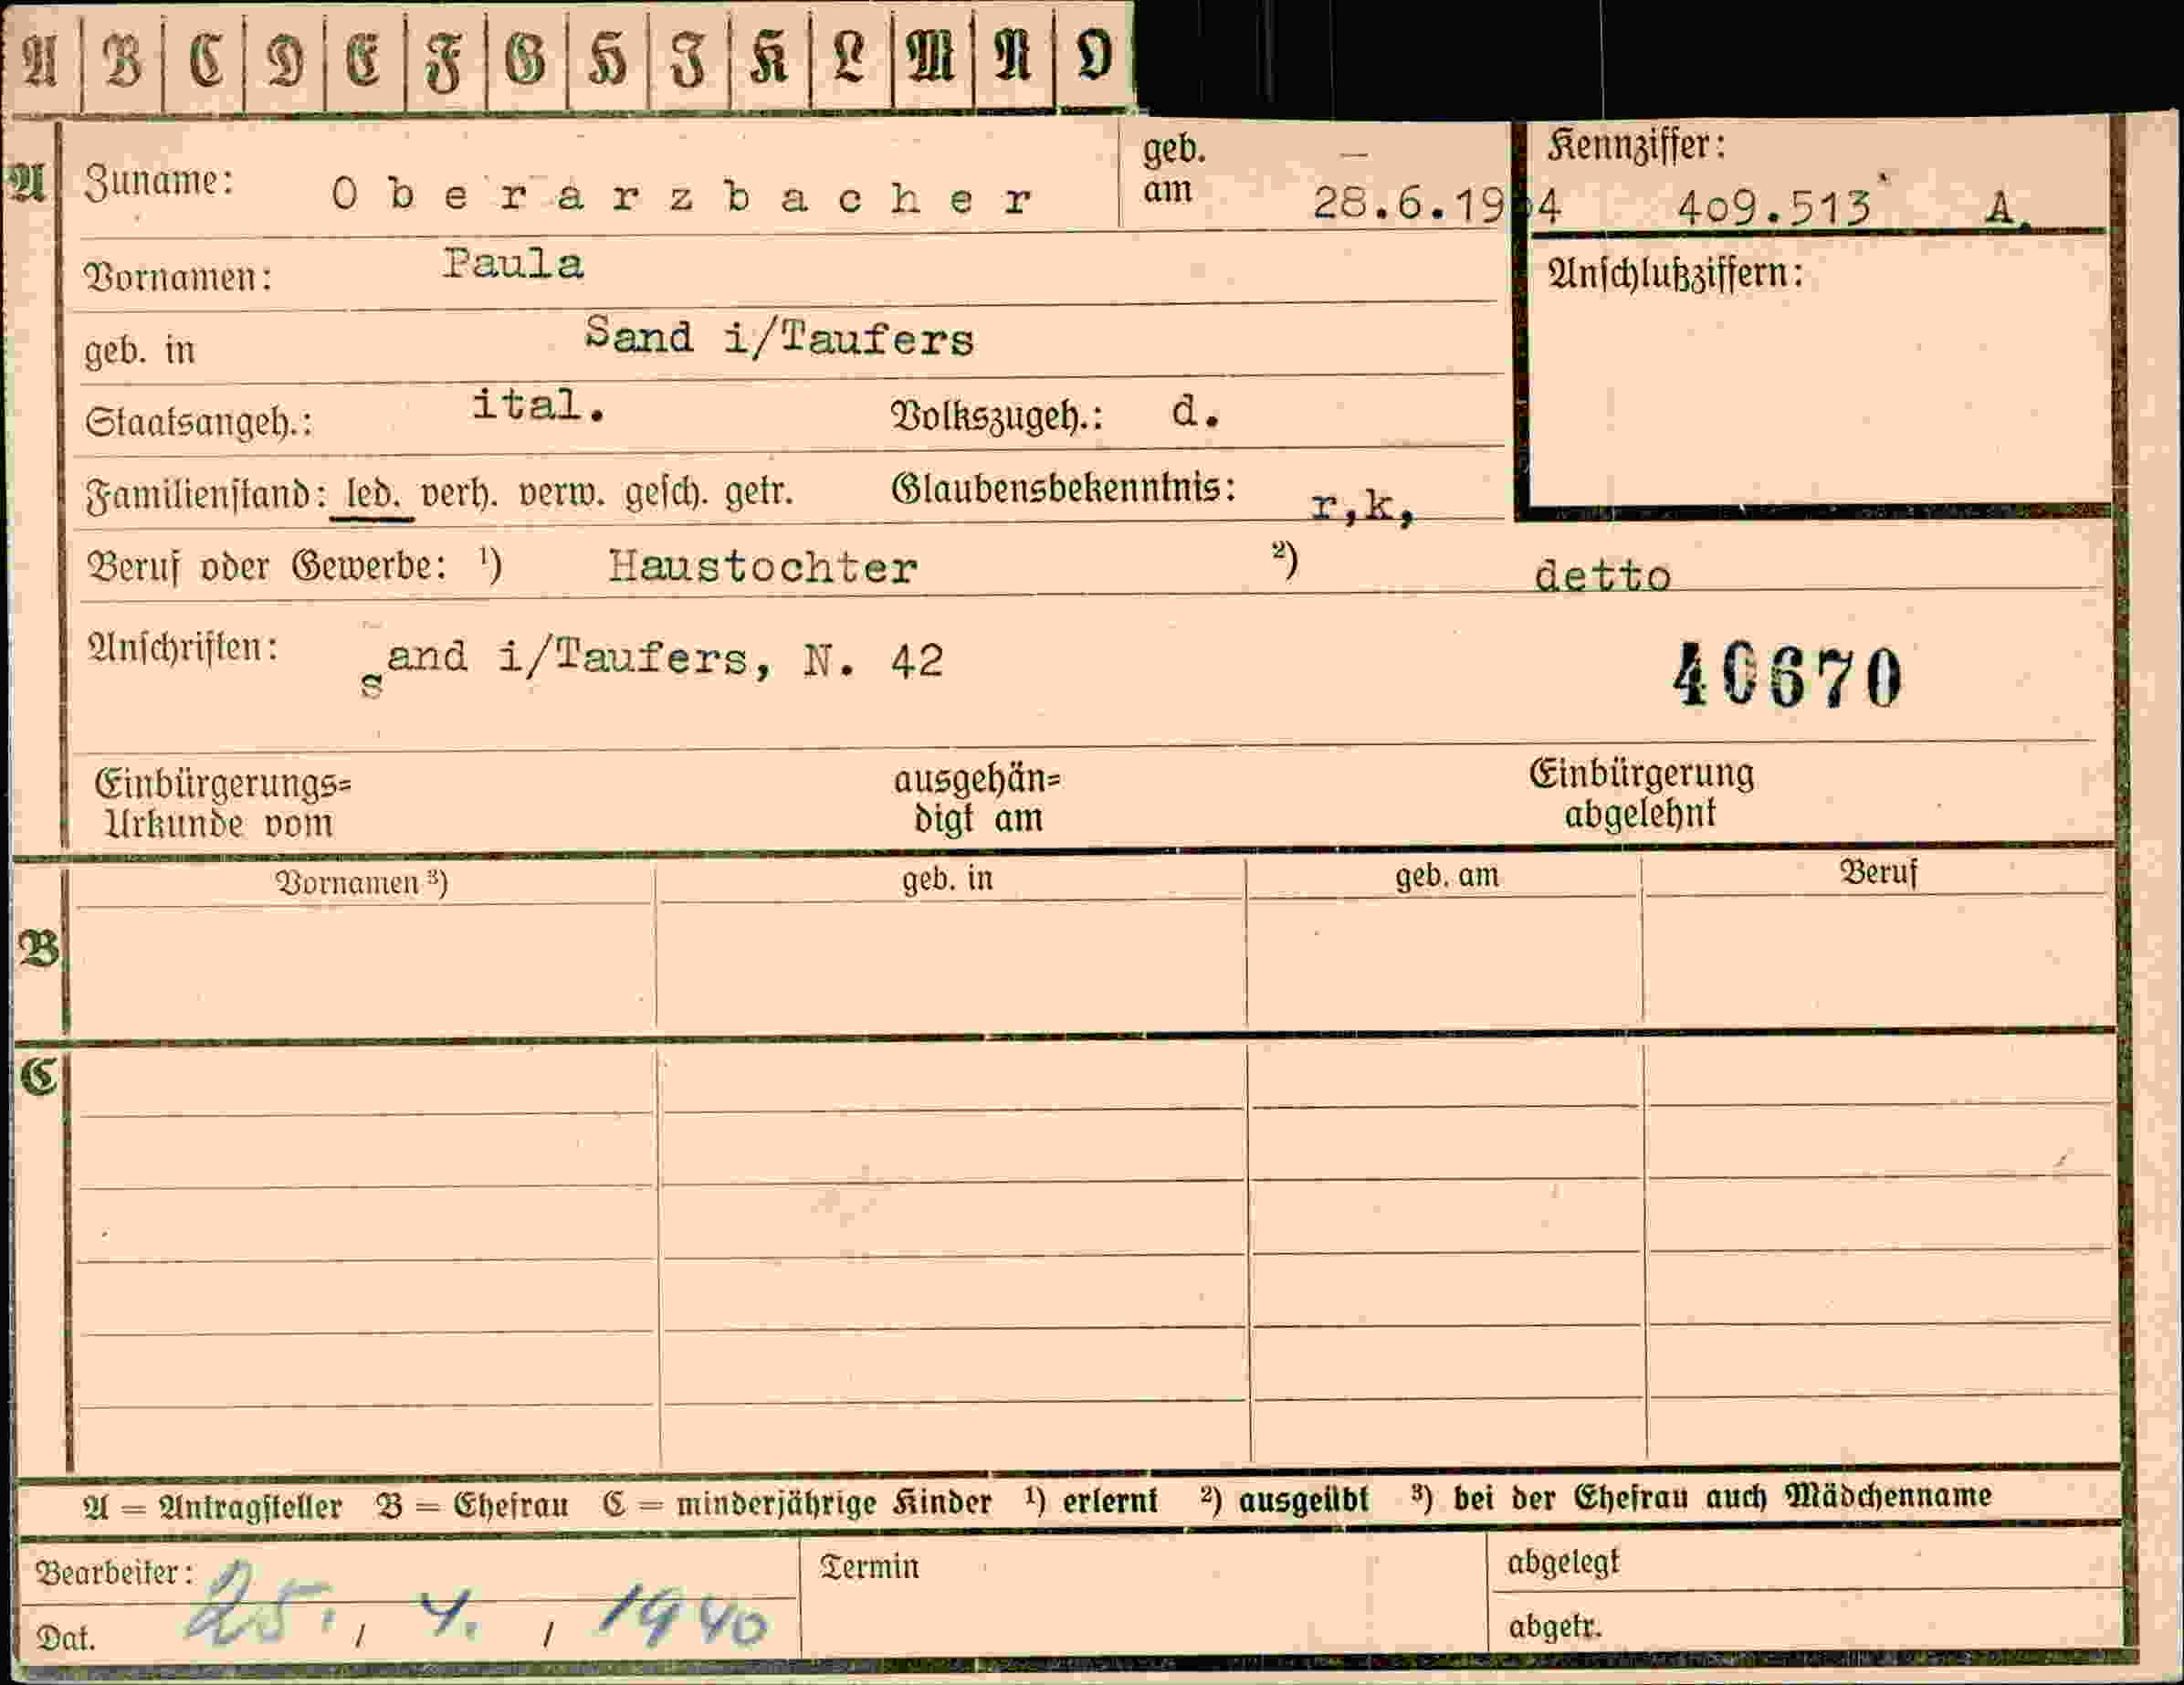 A B C D E F G H I K L M N O
A
Zuname: Oberarzbacher geb. am 28.6.19 4 Kennziffer: 409.513 A.
Vornamen: Paula Anschlußziffern:
geb. in Sand i/Taufers
Staatsangeh.: ital. Volkszugeh.: d.
Familienstand: led. verh. verw. gesch. getr. Glaubensbekenntnis: r,k,
Beruf oder Gewerbe: ¹) Haustochter ²) detto
Anschriften: Sand i/Taufers, N. 42 40670
Einbürgerungs= ausgehän= Einbürgerung
Urkunde vom digt am abgelehnt
Vornamen ³) geb. in geb. am Beruf
B
C
A = Antragsteller B = Ehefrau C = minderjährige Kinder ¹) erlernt ²) ausgeübt ³) bei der Ehefrau auch Mädchenname
Bearbeiter: Termin abgelegt
Dat. 25. / 4. / 1940 abgetr.